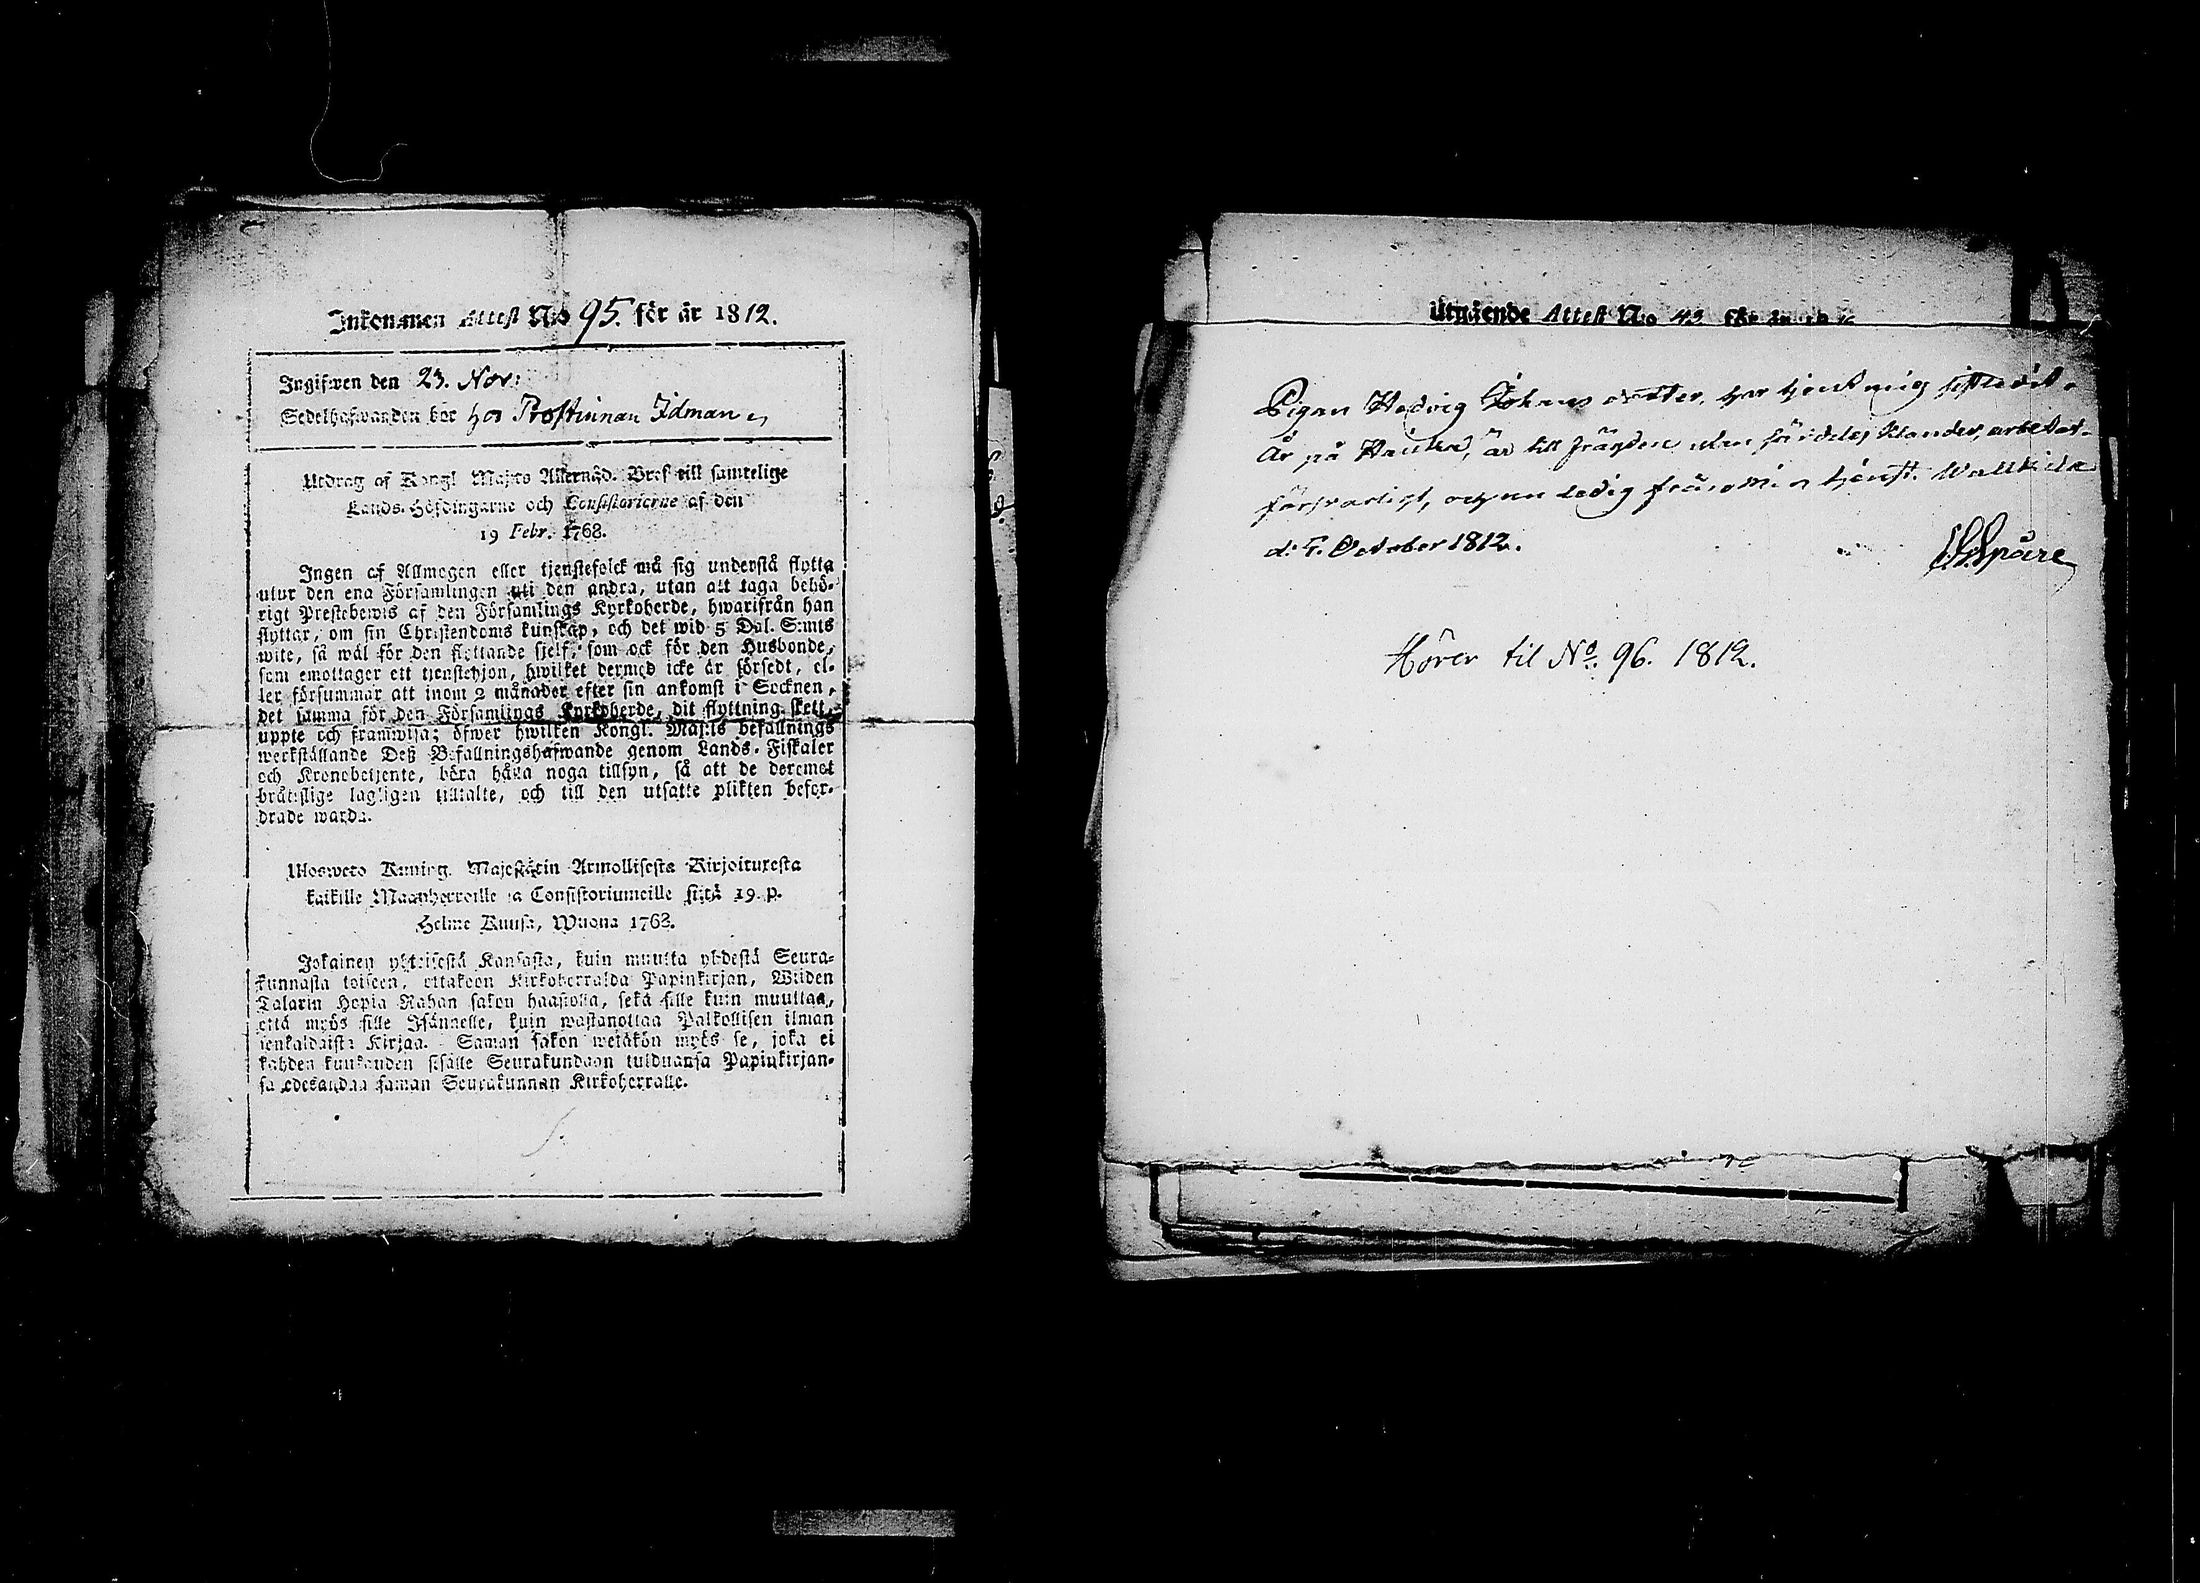 Inkommen Attest N:o 95. för år 1812.
Ingifwen den 23. Nov:
Sedelhafwanden bor hos Prostinnan Idman
Utdrag af Kongl. Maj:ts Allernåd. Bref till samtelige
Lands-Höfdingarne och Consistorierne af den
19 Febr. 1768.
Ingen af Allmogen eller tjenstefolck må sig understå flytta
utur den ena Församlingen uti den andra, utan att taga behö-
rigt Prestebewis af den Församlings Kyrkoherde, hwarifrån han
flyttar, om sin Christendoms kunskap, och det wid 5 Dal. S:mts
wite, så wäl för den flyttande sjelf, som ock för den Husbonde,
som emottager ett tjenstehjon, hwilket dermed icke är försedt, el-
ler försummar att inom 2 månader efter sin ankomst i Socknen,
det samma för den Församlings Kyrkoherde, dit flyttning skett,
uppte och framwisa; öfwer hwilken Kongl. Maj:ts befallnings
werkställande Deß Befallningshafwande genom Lands-Fiskaler
och Kronobetjente, böra hålla noga tillsyn, så att de deremot
bråtslige lagligen tilltalte, och till den utsatte plikten befor-
drade warda.
Ulosweto Kuning. Majestätin Armollisesta Kirjoituxesta
kaikille Maanherroille ja Consistoriumeille siitä 19. p.
Helme Kuusa, Wuona 1768.
Jokainen yhteisestä Kansasta, kuin muutta yhdestä Seura-
kunnasta toiseen, ottakoon Kirkoherralda Papinkirjan, Wiiden
Talarin Hopia Rahan sakon haastolla, sekä sille kuin muuttaa,
että myös sille Isännelle, kuin wastanottaa Palkollisen ilman
senkaldaista Kirjaa. Saman sakon wetäkön myös se, joka ei
kahden kuukauden sisälle Seurakundaan tulduansa Papinkirjan-
sa edesandaa saman Seurakunnan Kirkoherralle.
Utgående Attest N:o 43 för år
Pigan Hedvig Johans dotter, har tjent mig sistledit
År på Hauka, är till frägden utan särdeles klander, arbetat
försvarligt, och nu ledig från min tjenst. Wallkila
d: 5. October 1812.
Spåre
Hörer til No. 96. 1812.